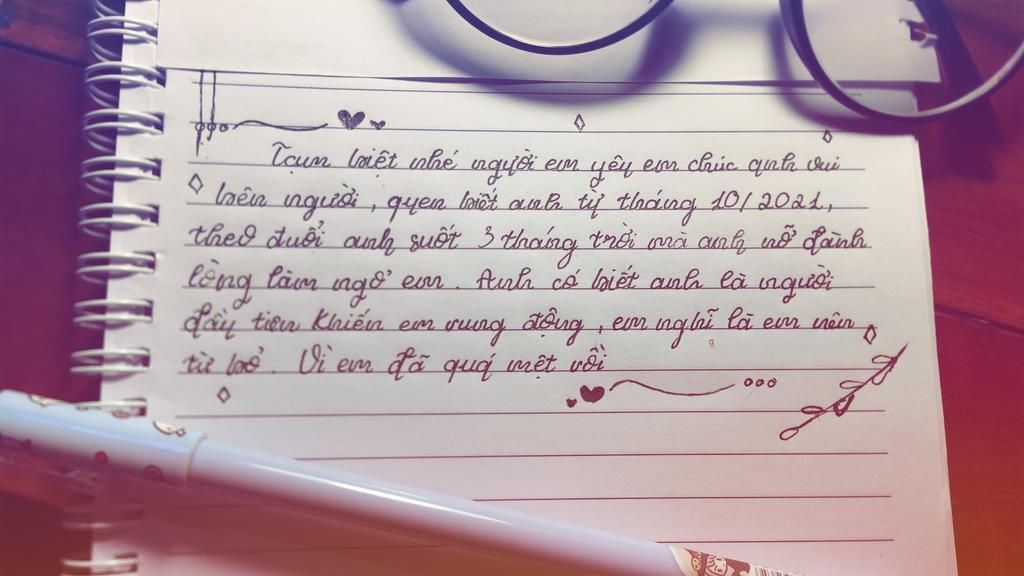 Tạm biệt nhé người em yêu em chúc anh vui
bên người, quen biết anh từ tháng 10/2021,
theo đuổi anh suốt 3 tháng trời mà anh nỡ đành
lòng làm ngơ em. Anh có biết anh là người
đầy tiên khiến em rung động, em nghĩ là em nên
từ bỏ. Vì em đã quá mệt rồi